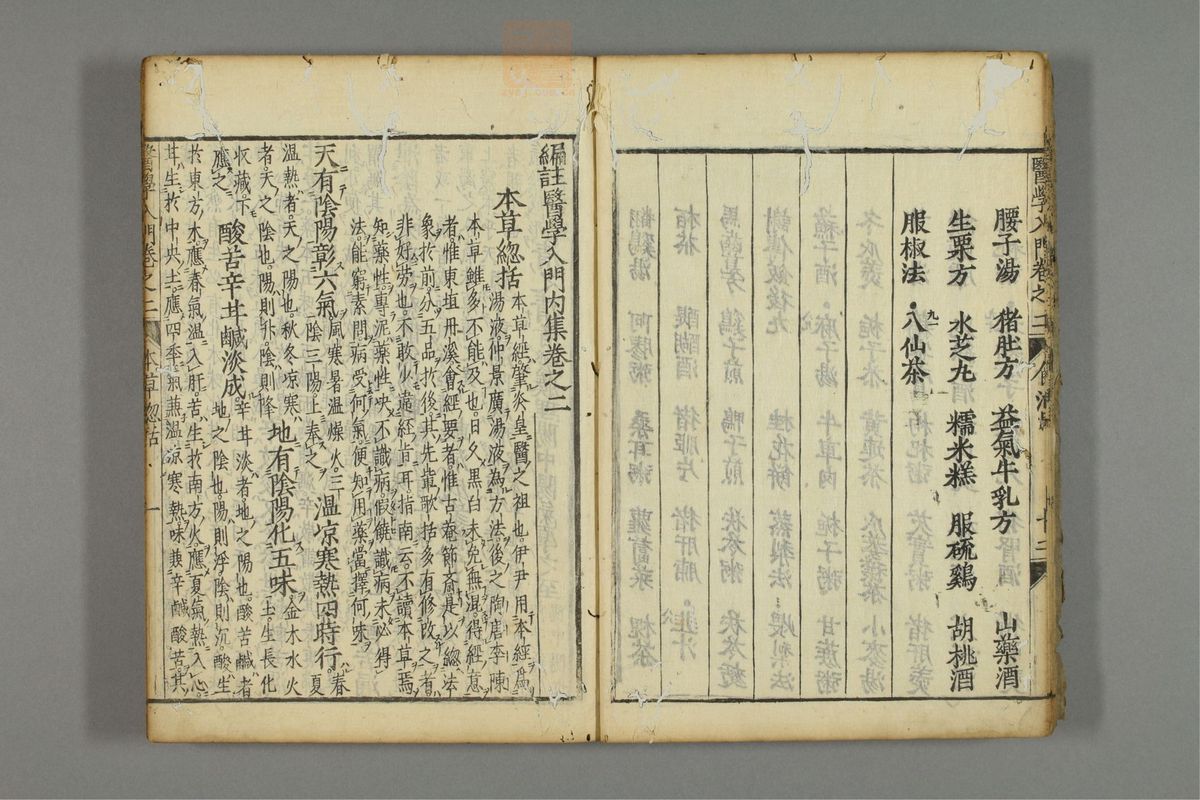 醫學入門卷之二 食治
腰子湯 猪肚方 益氣牛乳方 山藥酒
生栗方 水芝丸 糯米糕 服硫鷄 胡桃酒
服椒法 八仙茶
編註醫學入門内集卷之二
本草緫括
本草經肇炎皇醫之祖也伊尹用本經爲
湯液仲景廣湯液為方法後之陶唐李陳
本草雖多不能及也日久黑白未免無混得經意
者惟東垣丹溪會經要者惟古菴節齋是以緫法
象於前分五品於後其先賢歌括多有修改之者
非好勞也不敢少違經㫖耳指南云不讀本草焉
知藥性專泥藥性决不識病假饒識病未必得
法能窮素問病受何氣便知用藥當擇何味
天有陰陽彰六氣
風寒暑温燥火三
陰三陽上奉之
温凉寒熱四時行
春夏
温熱者天之陽也秋冬凉寒
者天之陰也陽則升陰則降
地有陰陽化五味
金木水火
土生長化
収藏下
應之
酸苦辛甘鹹淡成
辛甘淡者地之陽也酸苦鹹者
地之陰也陽則浮陰則沉酸生
於東方木應春氣温入肝苦生於南方火應夏氣熱入心
甘生於中央土應四季氣兼温凉寒熱味兼辛鹹酸苦其
醫學入門卷之二 本草緫括 一